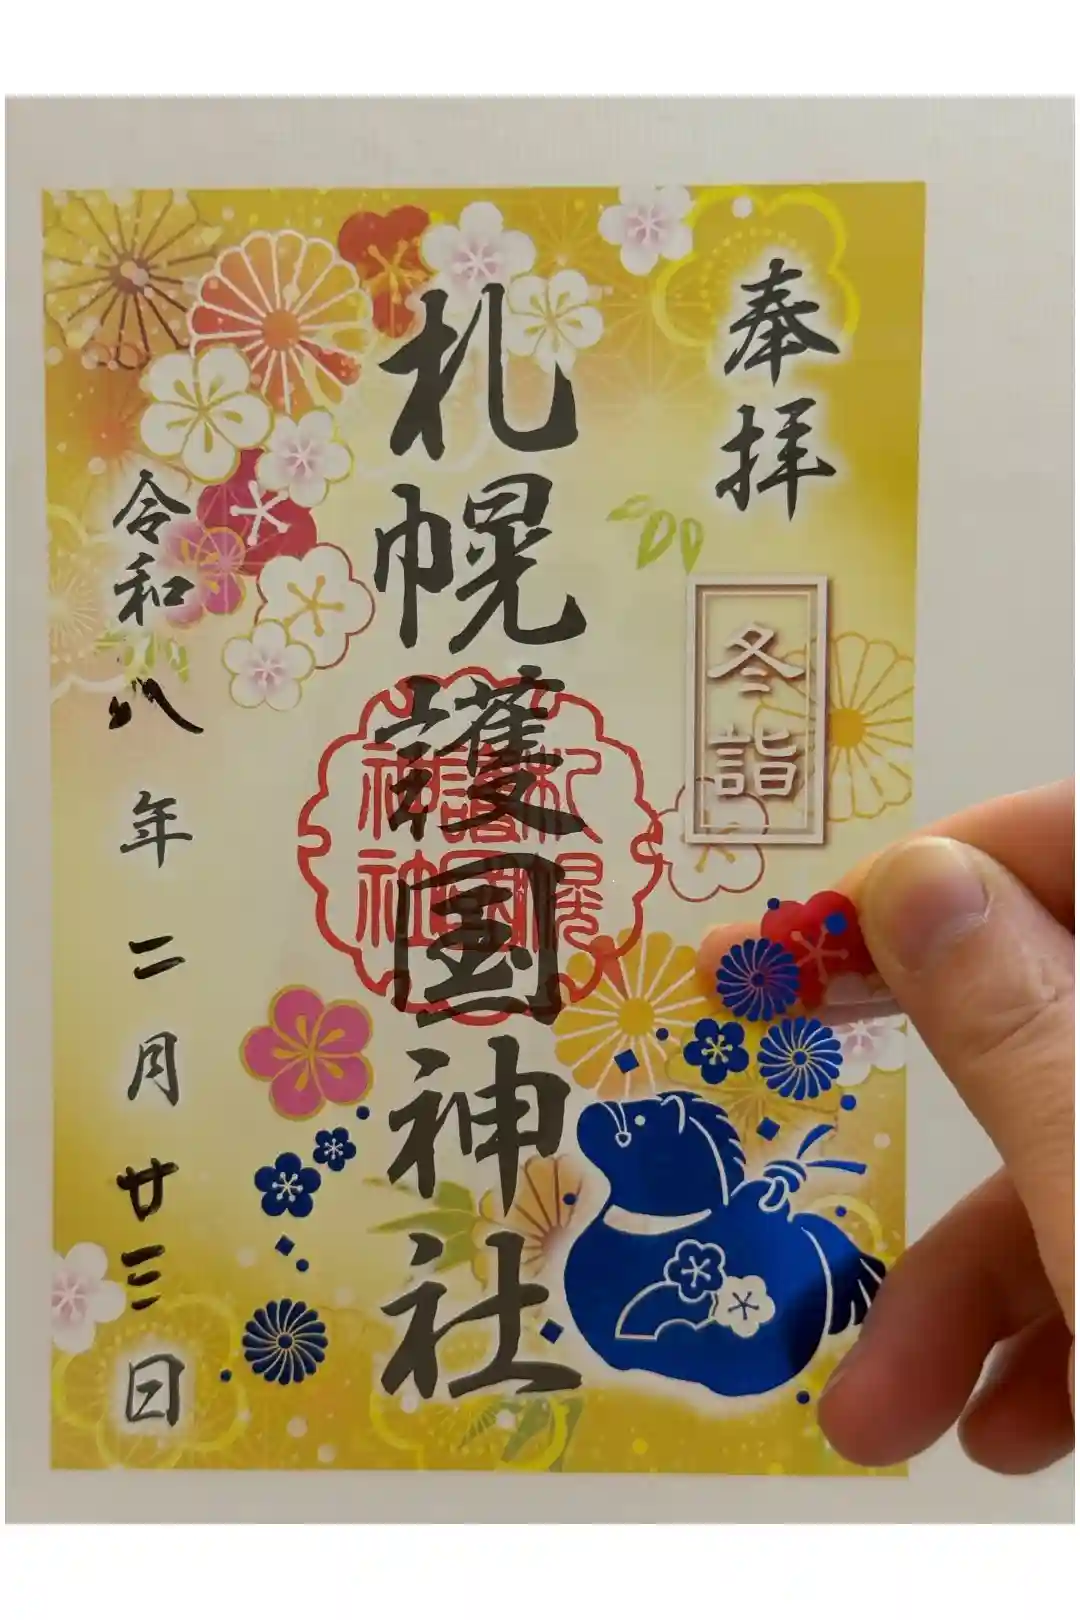 奉拝
冬詣
札幌護国神社
札幌
護國
神社
令和八年二月廿三日